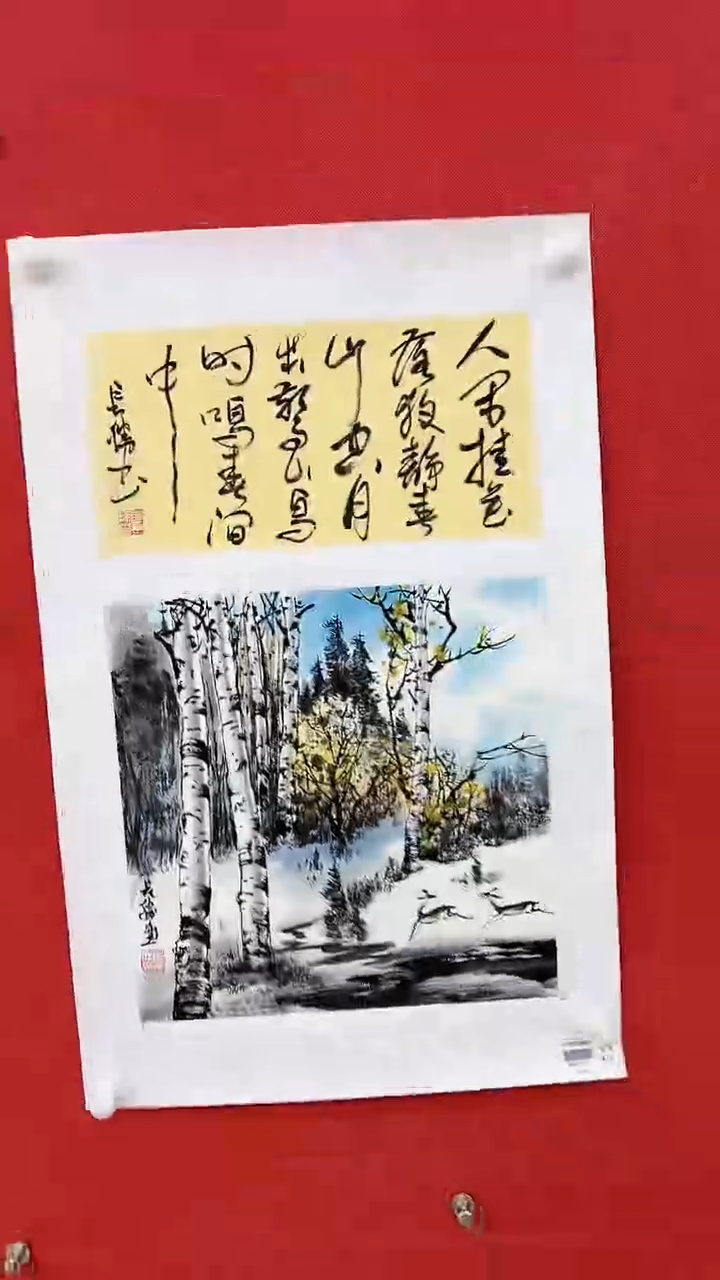 人闲桂花
落夜静春
山空月
出驚山鸟
时鸣春涧
中